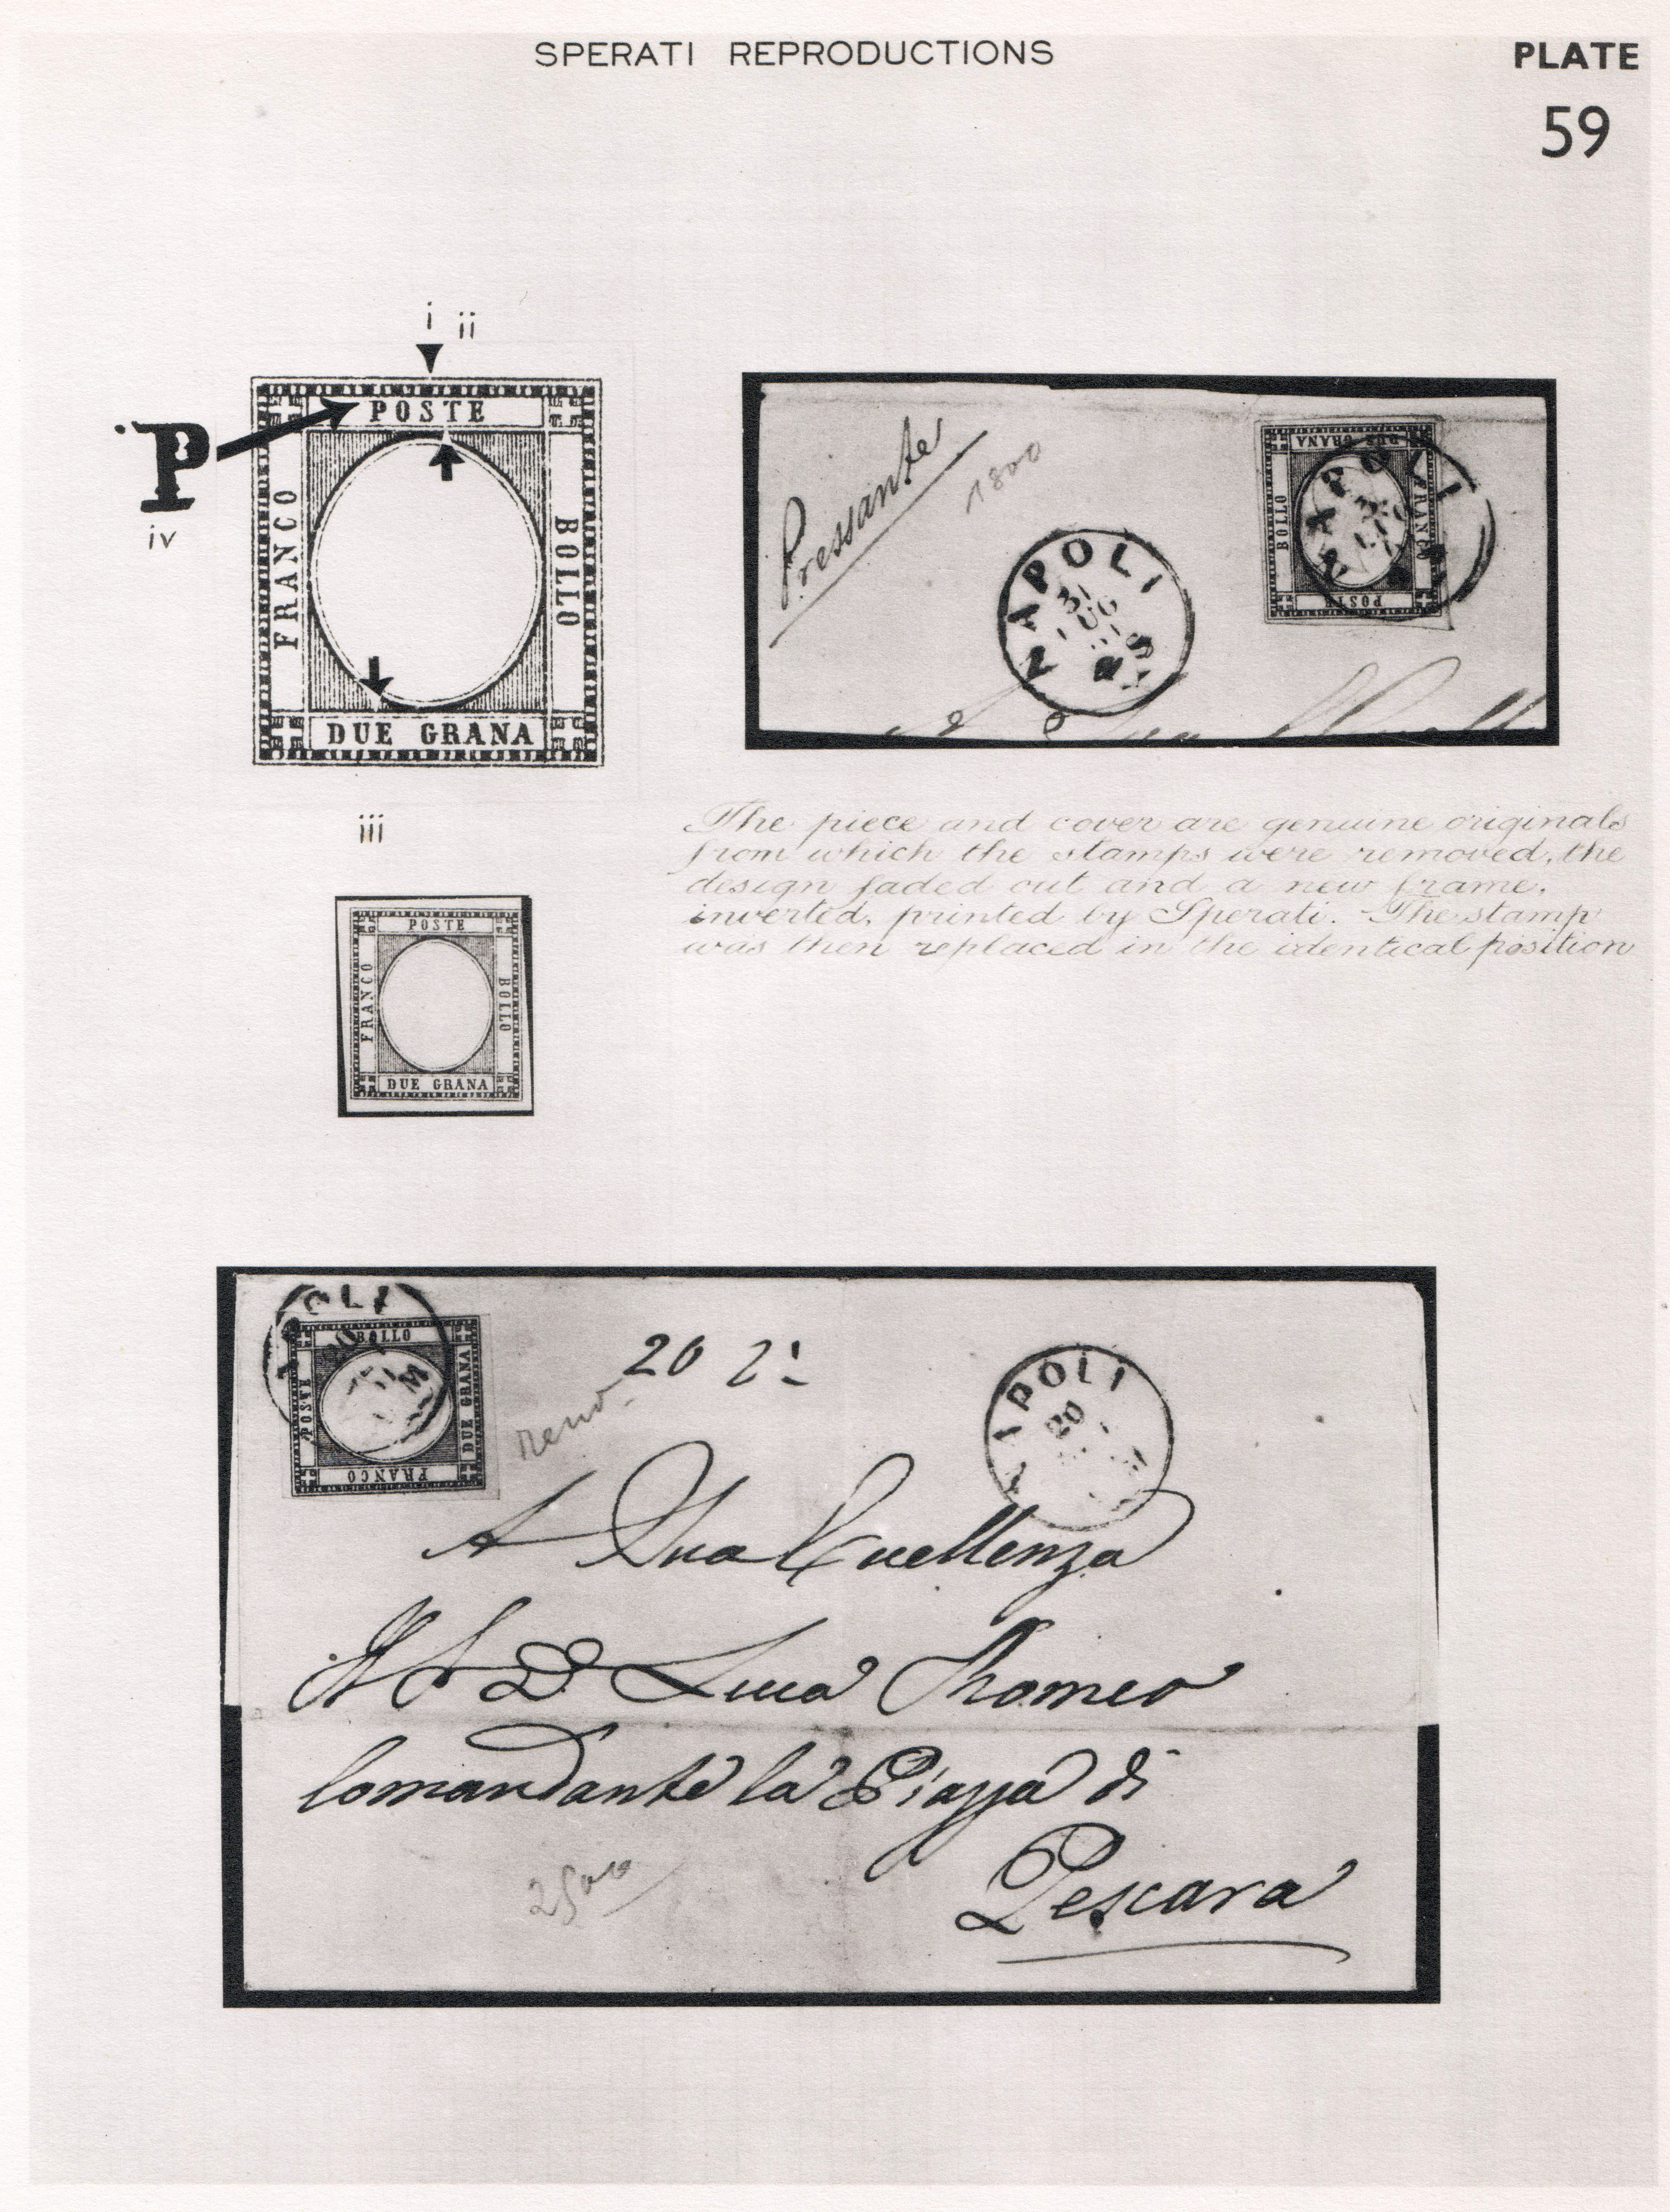 SPERATI REPRODUCTIONS
PLATE
59
i ii
POSTE
FRANCO
BOLLO
DUE GRANA
P
iv
iii
Pressante
1800
NAPOLI
31
DUE GRANA
BOLLO
FRANCO
POSTE
NAPOLI
The piece and cover are genuine originals
from which the stamps were removed, the
design faded out and a new frame,
inverted, printed by Sperati. The stamp
was then replaced in the identical position
POSTE
FRANCO
BOLLO
DUE GRANA
OLI
BOLLO
POSTE
DUE GRANA
FRANCO
20
APOLI
20
A Sua Eccellenza
D. Luca
Comandante la Piazza di
Pescara
2500